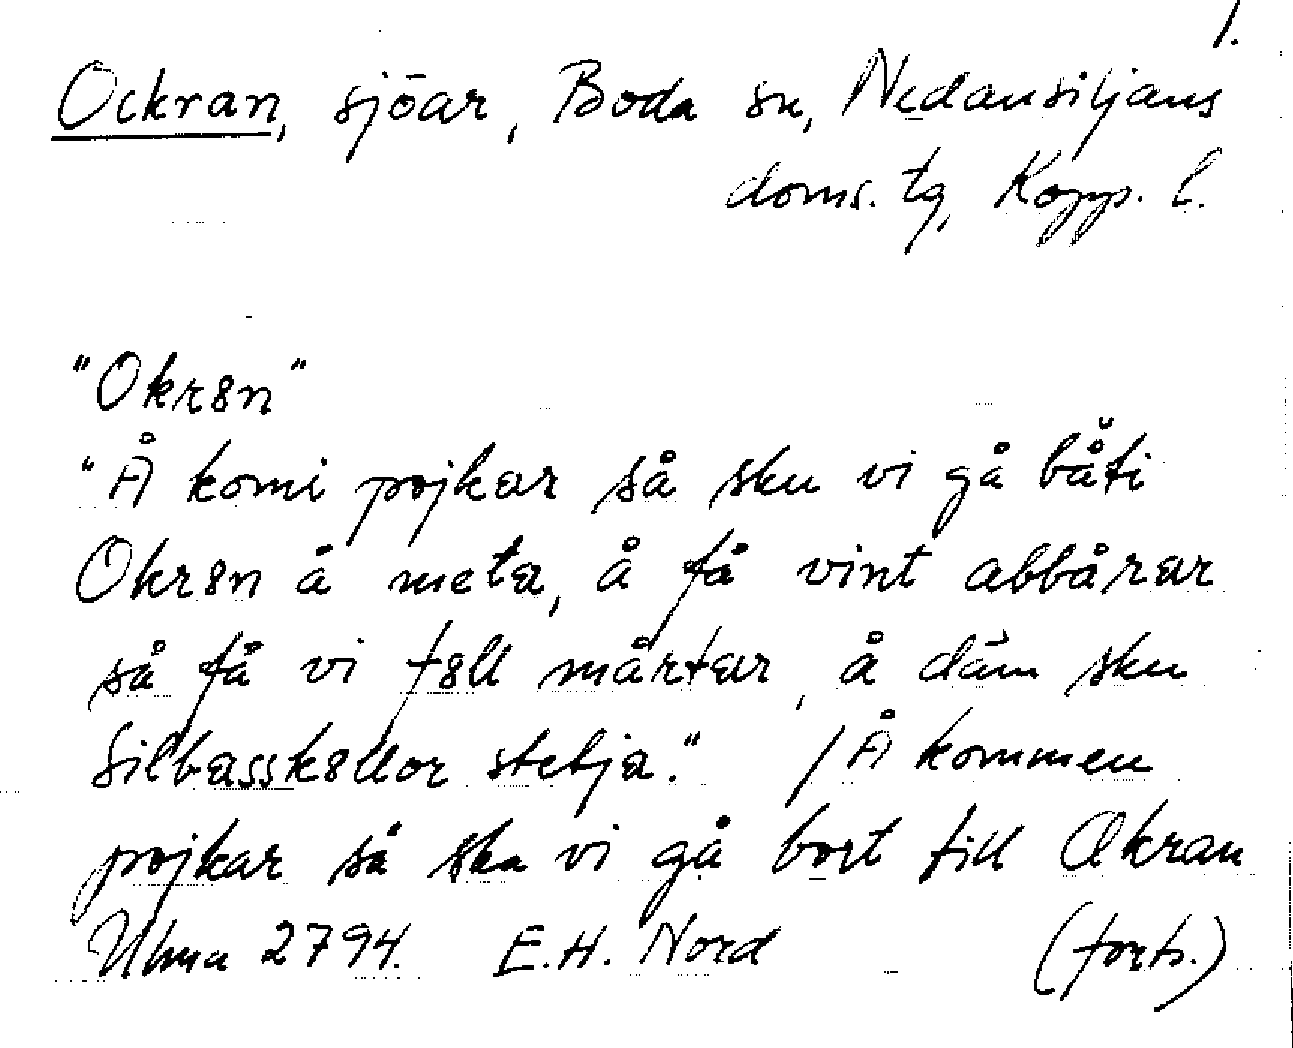 1.
Ockran, sjöar, Boda sn, Nedansiljans
doms. tg, Kopp. l.
"Okr8n"
"Å komi pojkar så sku vi gå båti
Okr8n å meta, å få vint abbårar
så få vi f8ll mårtar, å däm sku
Silbassk8llor stebja." /Å kommen
pojkar så ska vi gå bort till Okran
Uhma 2794. E.H. Nord (forts.)